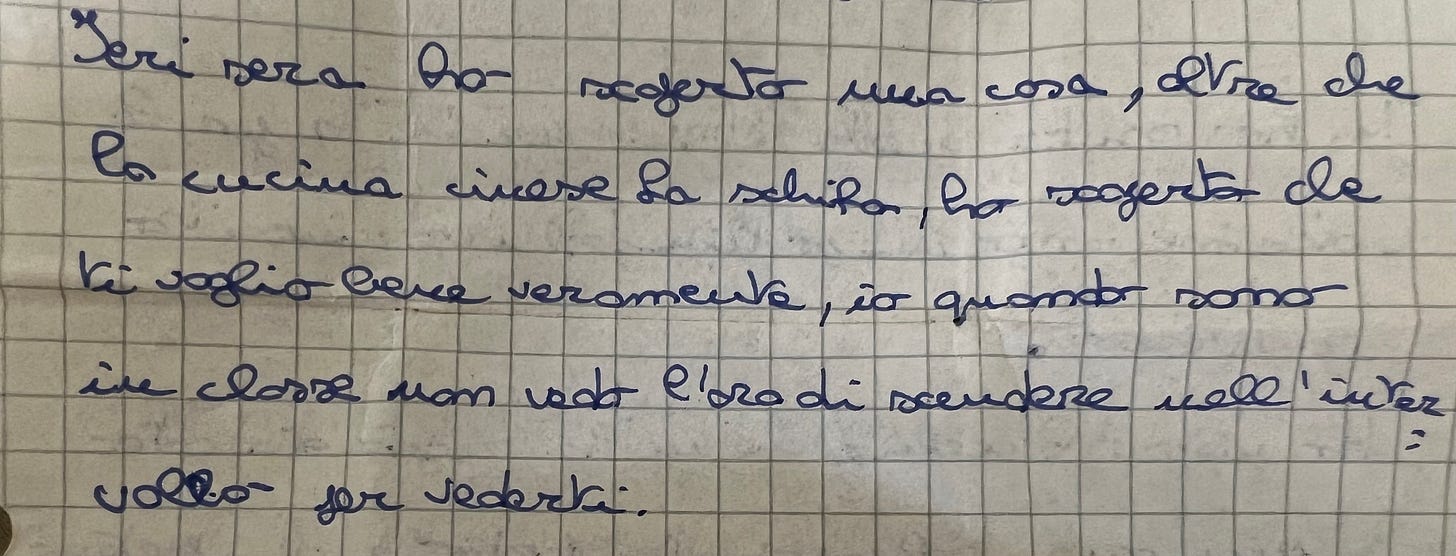 Ieri sera ho scoperto una cosa, oltre che
la cucina cinese fa schifo, ho scoperto che
ti voglio bene veramente, io quando sono
in classe non vedo l'ora di scendere nell'inter=
vallo per vederti.